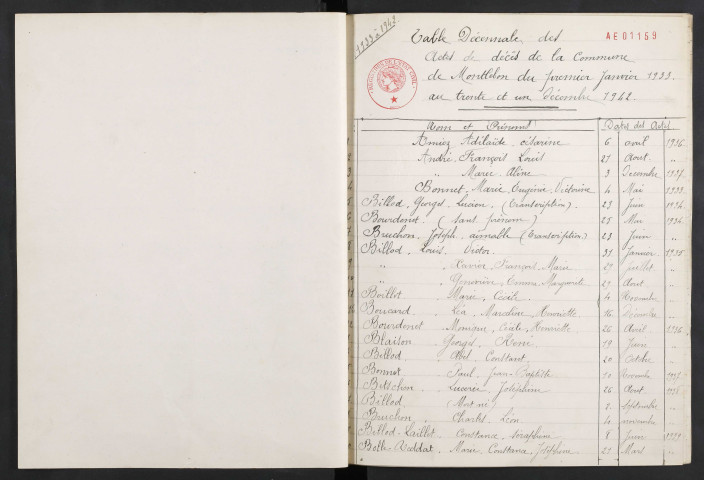 1933 à 1942
AE01159
Table Décennale des
Actes de décès de la Commune
de Montlebon du premier Janvier 1933
au trente et un Décembre 1942.
Nom et Prénoms Dates des Actes
Adélaïde 6 avril 1934
André François Louis 21 Aout "
" Marie Aline 3 Décembre 1937
Bonnet Marie Eugénie Victorine 4 Mai 1933
Billod, Georges Lucien (transcription). 23 Juin 1934
Bourdenet (sans prénom) 25 Mai 1934
Bruchon Joseph aimable (transcription) 23 Juin "
Billod Louis Victor 31 Janvier 1935
" Xavier François Marie 27 Juillet "
" Geneviève Marguerite 29 Aout "
Boillot Marie Cécile 4 Novembre "
Boucard Léa Henriette 16 Décembre "
Bourdenet Monique Cécile Henriette 26 Avril 1936
Blaison Georges René 19 Juin "
Billod Abel Constant 20 Octobre "
Bonnet Paul Jean-Baptiste 10 Novembre
Betschen Lucerie Joséphine 26 Aout
Billod (Mort né) 2 Septembre "
Bruchon Charles Léon 10 novembre "
Billod-Laillet Constance Joséphine 8 Juin 1939
Bolle-Reddat Marie Constance Joséphine 21 Mars "